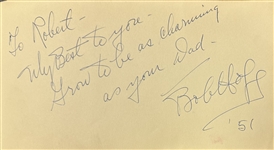 To Robert -
My Best to you -
Grow to be as charming
as your Dad -
Bob Hoff
'51